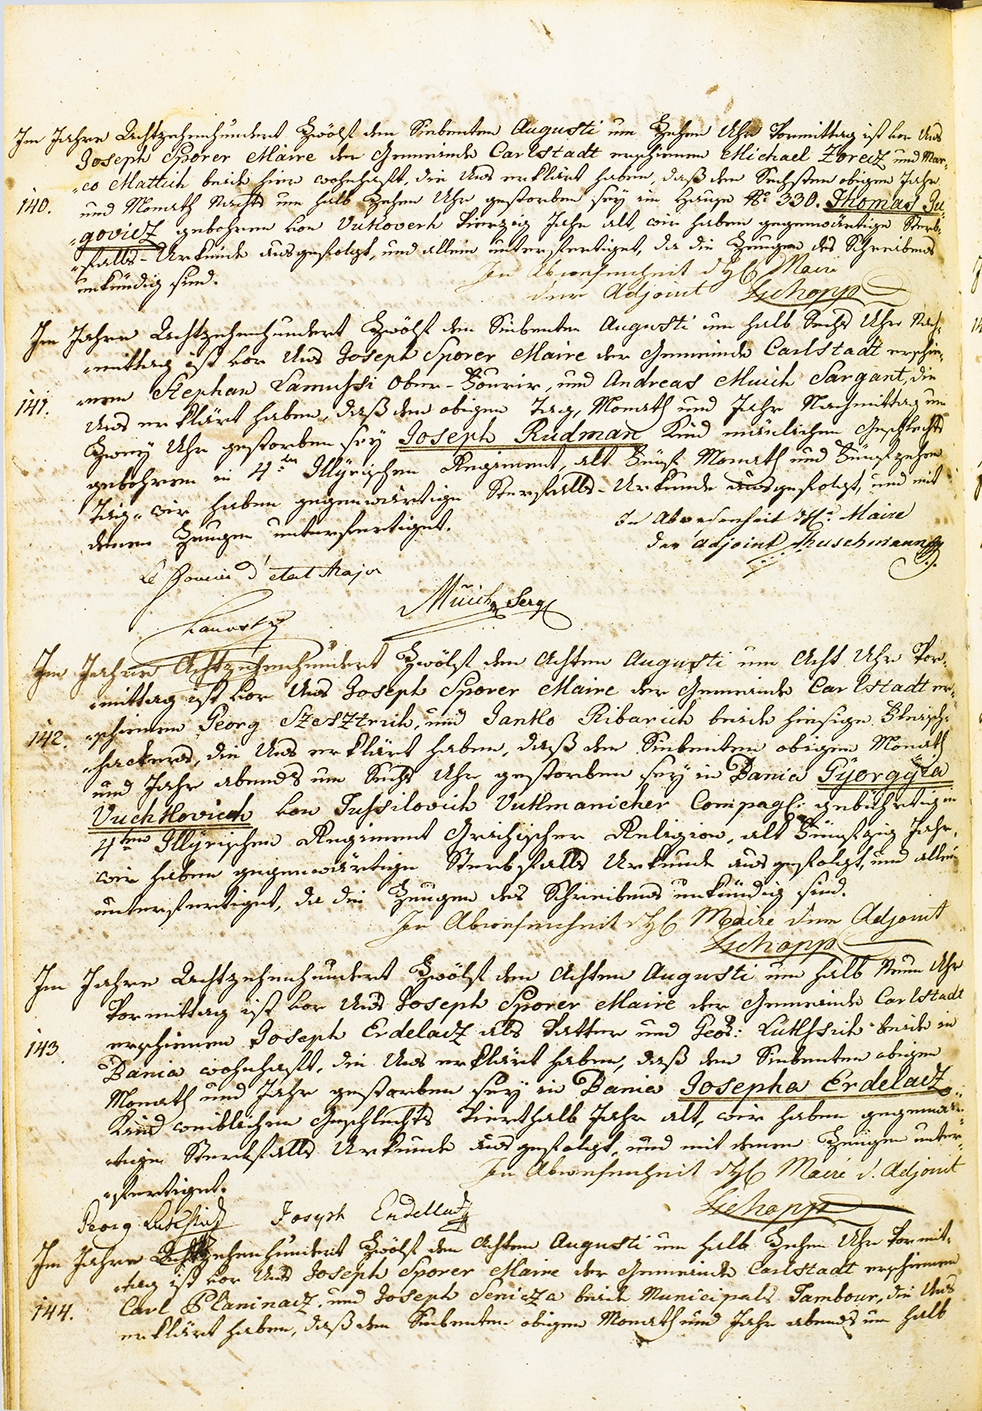 Im Jahre Achtzehenhundert Zwölf den Siebenten Augusti um Zehen Uhr Vormittag ist vor Uns
Joseph Sporer Maire der Gemeinde Carlstadt erschienen Michael Zoretz und Mar-
co Mattich beide hier wohnhaft, die Uns erklärt haben, daß den Sechsten obigen Jahr
140. und Monath Nachts um halb Zehen Uhr gestorben sey im Hause No 330. Thomas Ju-
govicz gebohren von Vukoverh Vierzig Jahr alt, wir haben gegenwärtige Sterb-
falls-Urkunde ausgefolgt, und allein unterfertiget, da die Zeugen des Schreibens
unkündig sind.
In Abwesenheit des H. Maire
der Adjoint
Im Jahre Achtzehenhundert Zwölf den Siebenten Augusti um halb Sechs Uhr Nach-
mittag ist vor Uns Joseph Sporer Maire der Gemeinde Carlstadt erschie-
nen Stephan Lamussi Ober-Fourir, und Andreas Muich Sargant, die
141. Uns erklärt haben, daß den obigen Tag, Monath und Jahr Nachmittag um
Zwey Uhr gestorben sey Joseph Rudman Kind mänlichen Geschlechts
gebohren in 4ten Illÿrischen Regiment, alt Fünf Monath und Fünfzehen
Tag, wir haben gegenwärtige Sterbfalls-Urkunde ausgefolgt, und mit
denen Zeugen unterfertiget.
In Abwesenheit H. Maire
der adjoint Muschmann
Le Fourier d'etat Major
Muich Serg
Im Jahre Achtzehenhundert Zwölf den Achten Augusti um Acht Uhr Vor-
mittag ist vor Uns Joseph Sporer Maire der Gemeinde Carlstadt er-
142. schienen Georg Szesztrich, und Janko Ribarich beide hiesige Fleisch-
hackers, die Uns erklärt haben, daß den Siebenten obigen Monath
und Jahr abends um Sechs Uhr gestorben sey in Bania Gÿorgÿza
Vuchkovich von Tussilovich Vukmanicher Compag: gebührtigen
4ten Illÿrischen Regiment Grichischer Religion, alt Fünfzig Jahr,
wir haben gegenwärtige Sterbfalls Urkunde ausgefolgt, und allein
unterfertiget, da die Zeugen des Schreibens unkündig sind.
In Abwesenheit des H. Maire dem Adjoint
Im Jahre Achtzehenhundert Zwölf den Achten Augusti um halb Neun Uhr
Vormittag ist vor Uns Joseph Sporer Maire der Gemeinde Carlstadt
erschienen Joseph Erdelacz als Vatter und Geor: Lukssich beide in
143. Bania wohnhaft, die Uns erklärt haben, daß den Siebenten obigen
Monath und Jahr gestorben sey in Bania Josepha Erdelacz
Kind weiblichen Geschlechts Vierthalb Jahr alt, wir haben gegenwär-
tige Sterbfalls Urkunde ausgefolgt, und mit denen Zeugen unter-
fertiget.
In Abwesenheit des H. Maire d. Adjoint
Georg Joseph Erdellacz
Im Jahre Achtzehenhundert Zwölf den Achten Augusti um halb Zehen Uhr Vormit-
tag ist vor Uns Joseph Sporer Maire der Gemeinde Carlstadt erschienen
144. Carl Planinacz, und Joseph Senicza beide Municipals Tambour, die Uns
erklärt haben, daß den Siebenten obigen Monath und Jahr abends um halb